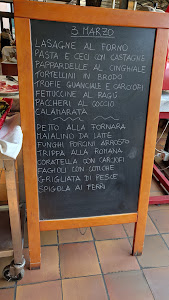 3 MARZO
LASAGNE AL FORNO
PASTA E CECI CON CASTAGNE
PAPPARDELLE AL CINGHIALE
TORTELLINI IN BRODO
TROFIE GUANCIALE E CARCIOFI
FETTUCCINE AL RAGÙ
PACCHERI AL COCCIO
CALAMARATA
PETTO ALLA FORNARA
MAIALINO DA LATTE
FUNGHI PORCINI ARROSTO
TRIPPA ALLA ROMANA
CORATELLA CON CARCIOFI
FAGIOLI CON COTICHE
GRIGLIATA DI PESCE
SPIGOLA AI FERRI